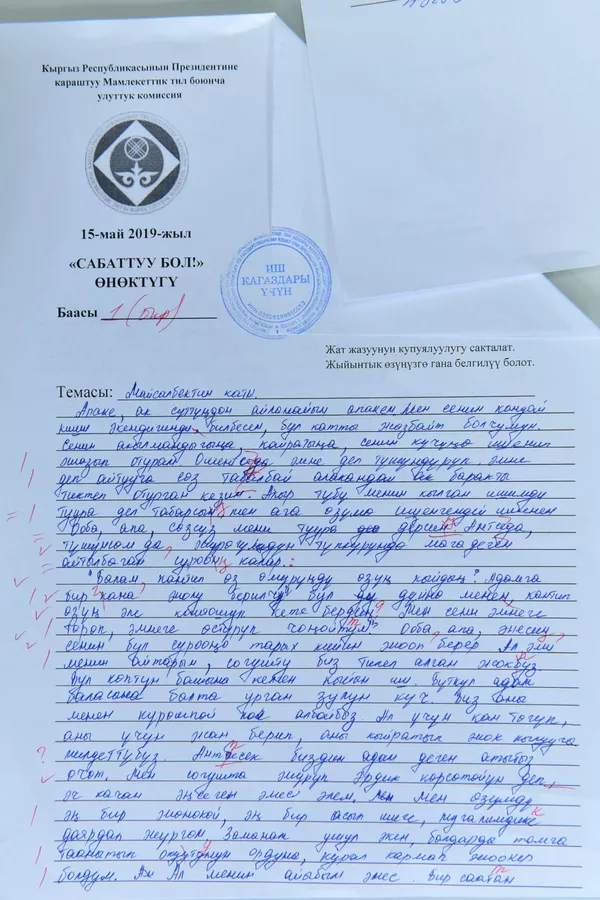 Кыргыз Республикасынын Президентине
караштуу Мамлекеттик тил боюнча
улуттук комиссия
15-май 2019-жыл
«САБАТТУУ БОЛ!»
ӨНӨКТҮГҮ
Баасы 1 (бир)
ИШ
КАГАЗДАРЫ
ҮЧҮН
Жат жазуунун купуялуулугу сакталат.
Жыйынтык өзүңүзгө гана белгилүү болот.
Темасы: Майсалбектин каты.
Апаке, ак сүтүңдөн айланайын апакем. Мен сенин кандай
киши экендигиңди билбесем, бул катты жазбайт болчумун.
Сенин акылмандыгыңа, кайратыңа, сенин күчүңө ишенип
жазып отурам. эмне деп түшүндүрүп, эмне
деп айтууга сөз таба албай алакандай ак баракты
тиктеп отурган кезим. Акыр түбү менин кылган ишимди
туура деп табарсың мен ага өзүмө ишенгендей ишенем
Ооба, апа, сөзсүз мени туура дерсиң. Антсе да,
түшүнсөң да, жүрөгүңдүн түпкүрүндө мага деген
айтылбаган сурооң калар.
"Балам, кантип өз өмүрүңдү өзүң койдуң? Адамга
бир кана жолу берилчү бул дүйнө менен кантип
өзүң эле коштошуп кете бердең. Мен сени эмнеге
төрөп, эмнеге өстүрүп чоңойттум" Ооба, апа, энесиң,
сенин бул сурооңо тарых кийин жооп берер. Ал эми
менин айтарым, согушту биз тилеп алган жокбуз
Бул көптүн башына келген кыйын иш. Бүткүл адам
баласына балта урган зулум күч. Биз аны
менен күрөшпөй албайбыз. Ал үчүн кан төгүп,
аны үчүн жан берип, аны кыйратып жок кылууга
милдеттүбүз. Антпесек биздин адам деген атыбыз
өчөт. Мен согушта жүрүп эрдик көрсөтөйүн деп,
эч качан эңсеген эмес элем. Мен өзүмдү
эң бир жөнөкөй, эң бир асыл ишке, мугалимдикке
даярдап жүргөм. Заманак ушул экен, балдарга тамга
таанытып окутуунун ордуна, курал кармап жоокер
болдум. Ал менин айыбым эмес. Бир сааттан